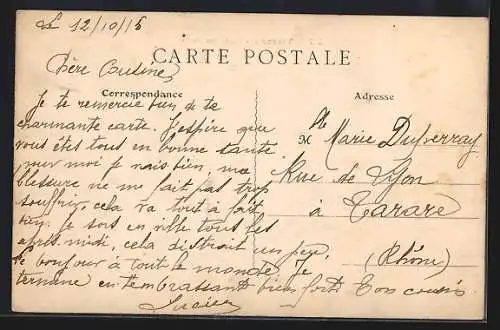 Le 12/10/15
CARTE POSTALE
Chère Cousine
Correspondance
Adresse
Je te remercie bien de ta
charmante carte. J'espère que
vous êtes tous en bonne santé
pour moi je vais bien, ma
blessure ne me fait pas trop
souffrir, cela va tout à fait
bien. Je sors en ville tous les
après midi, cela distrait un peu.
le bonjour à tout le monde. Je
termine en t'embrassant bien fort. Ton cousin
Lucien
M lle Marie
Rue de Lyon
à Tarare
(Rhône)